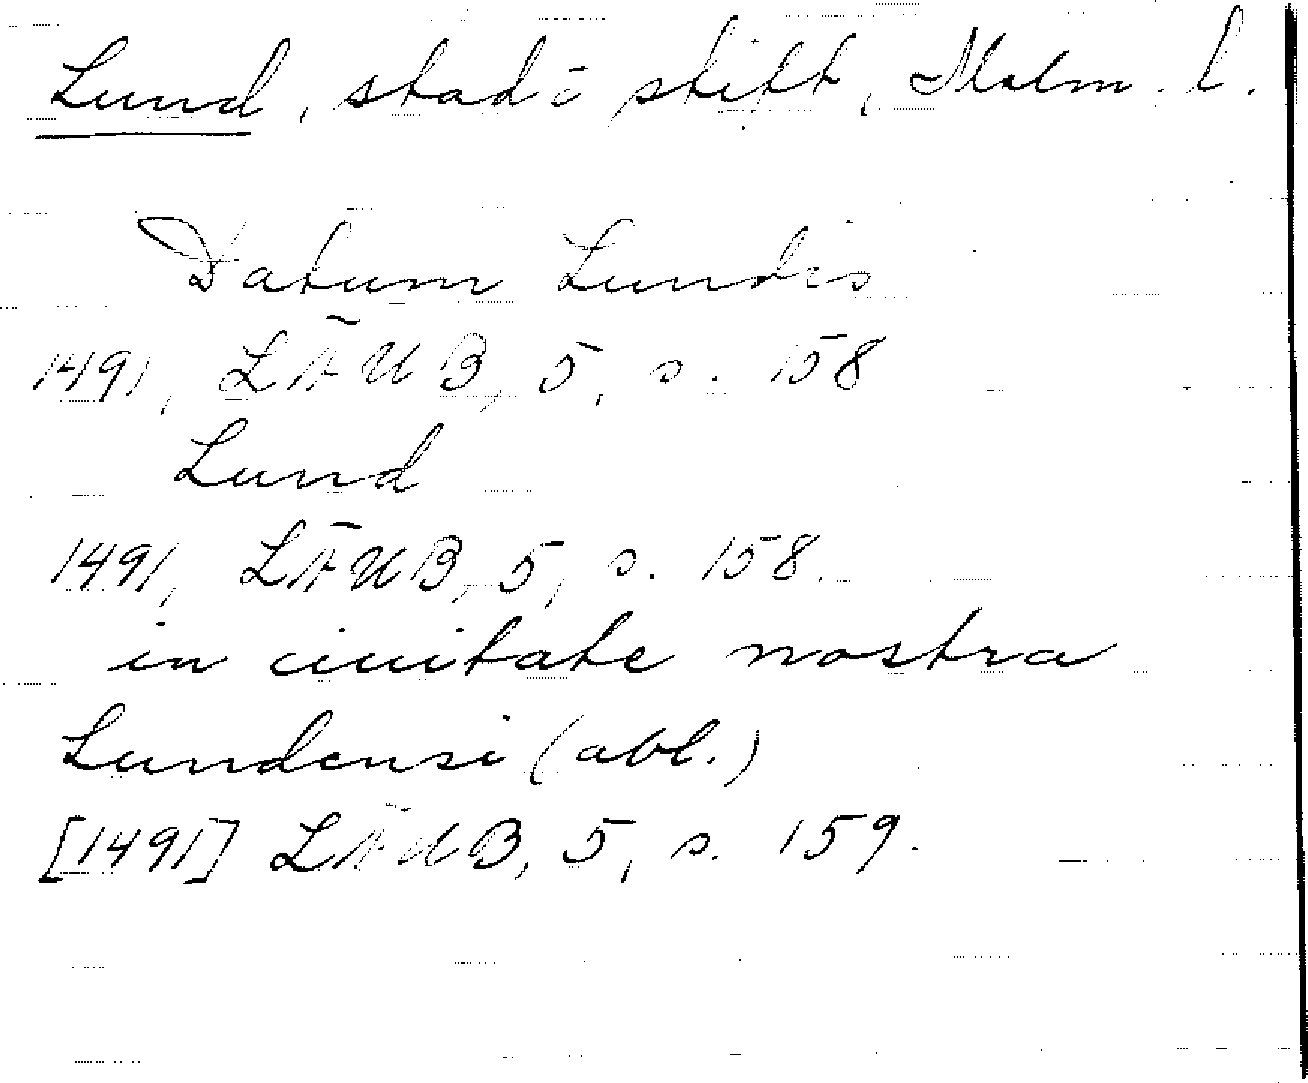 Lund, stad o stift, Malm. l.
Datum Lundis
1491, LÄUB, 5, s. 158
Lund
1491, LÄUB, 5, s. 158.
in ciuitate nostra
Lundensi (abl.)
[1491] LÄUB, 5, s. 159.